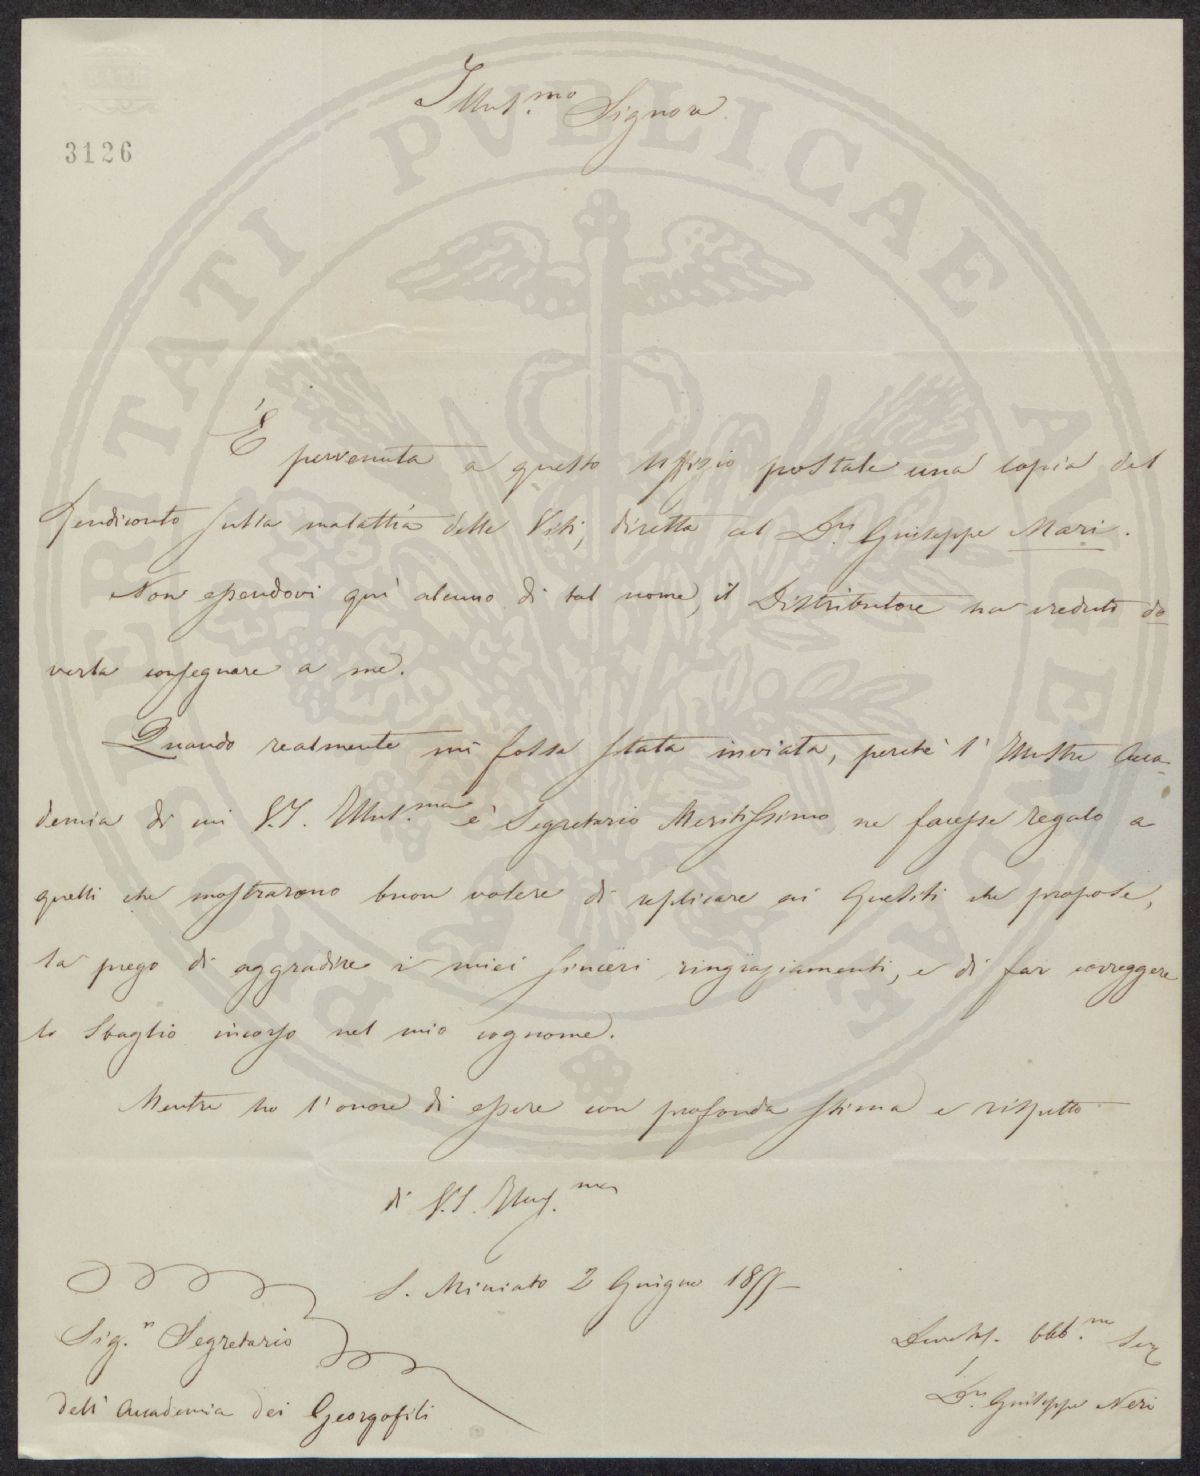 3126
Illus.mo Signore
È pervenuta a questo Uffizio postale una copia del
Rendiconto sulla malattia delle Viti, diretta al D.r Giuseppe Mari.
Non essendovi quì alcuno di tal nome, il Distributore ha creduto do
verla consegnare a me.
Quando realmente mi fosse stata inviata, perchè l'Illustre Acca-
demia di cui V.S. Illus.ma è Segretario Meritissimo ne facesse regalo a
quelli che mostrarono buon volere di replicare ai Quesiti che propose,
la prego di aggradire i miei sinceri ringraziamenti, e di far correggere
lo Sbaglio incorso nel mio cognome.
Mentre ho l'onore di essere con profonda stima e rispetto
di V.S. Illus.ma
S. Miniato 2 Giugno 1855
Sig.r Segretario
dell'Accademia dei Georgofili
Devotiss. Obb.mo Ser
D.r Giuseppe Neri
PROSPERITATI PVBLICAE AVGENDAE